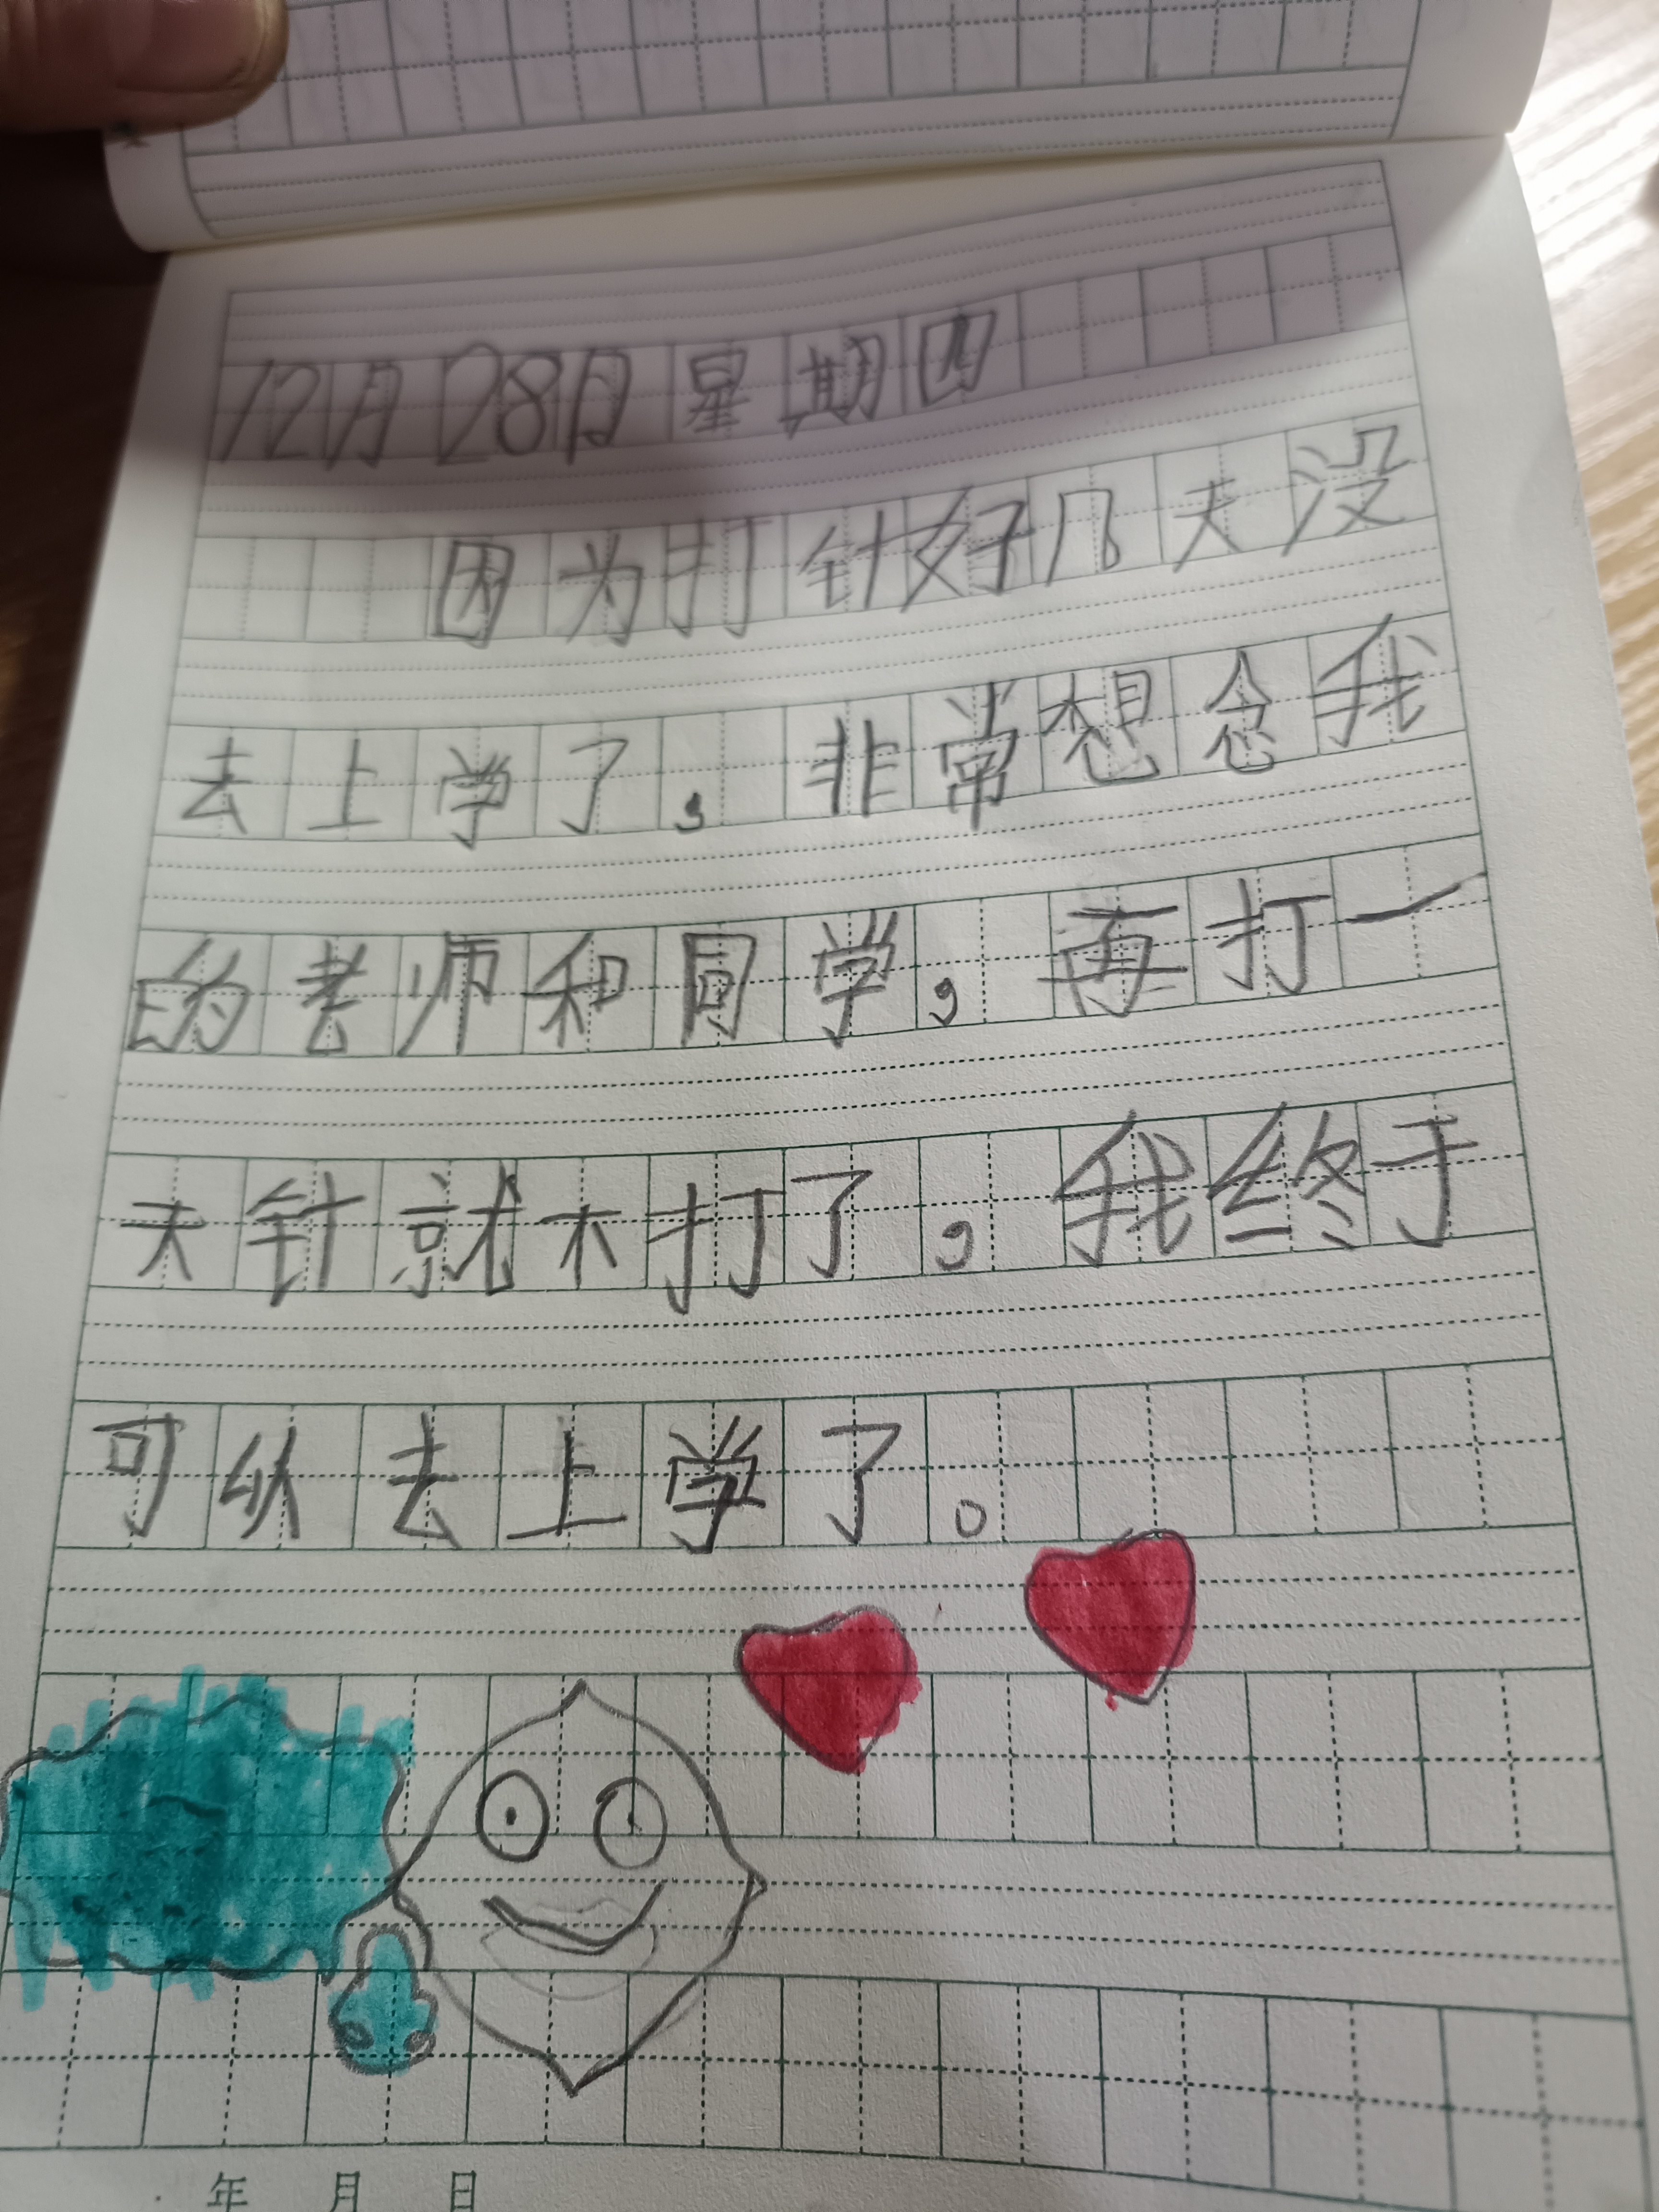 12月28日星期四
因为打针好几天没
去上学了，非常想念我
的老师和同学，再打一
天针就不打了，我终于
可以去上学了。
年 月 日